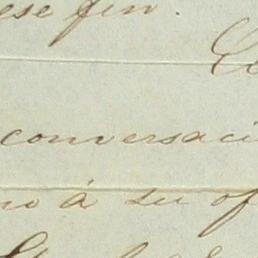 ese fin.
conversaci
no á su of